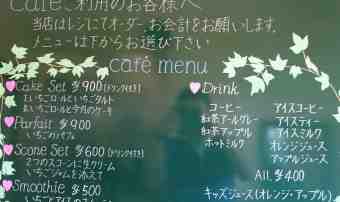 Cafeご利用のお客様へ
当店はレジにてオーダー、お会計をお願いします。
メニューは下からお選び下さい
café menu
Cake Set ¥900 (ドリンク付き)
いちごロールといちごタルト
Parfait ¥900
いちごのパフェ
Scone Set ¥600 (ドリンク付き)
2つのスコーンに生クリーム
いちごジャムを添えて
Smoothie ¥500
Drink
コーヒー アイスコーヒー
紅茶アールグレー アイスティー
紅茶アップル アイスミルク
ホットミルク オレンジジュース
アップルジュース
All. ¥400
キッズジュース(オレンジ・アップル)